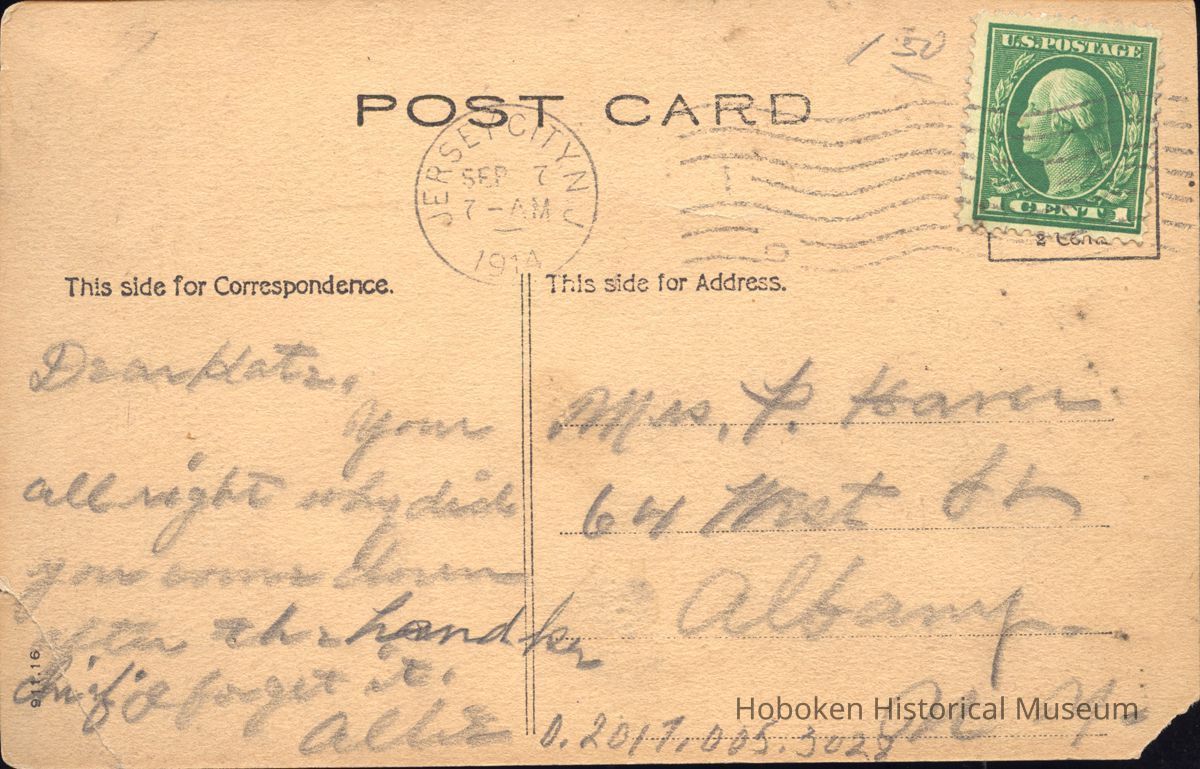 1 50
U.S.POSTAGE
1 CENT 1
POST CARD
JERSEY CITY N J
SEP 7
7-AM
1914
This side for Correspondence.
This side for Address.
Dear Kate,
Your
all right why did
you come down
after the handker
chief I forget it.
Albie
Mrs. P. Haver
64 West St
Albany
N. Y.
911.16
Hoboken Historical Museum
0.2017.005.3028